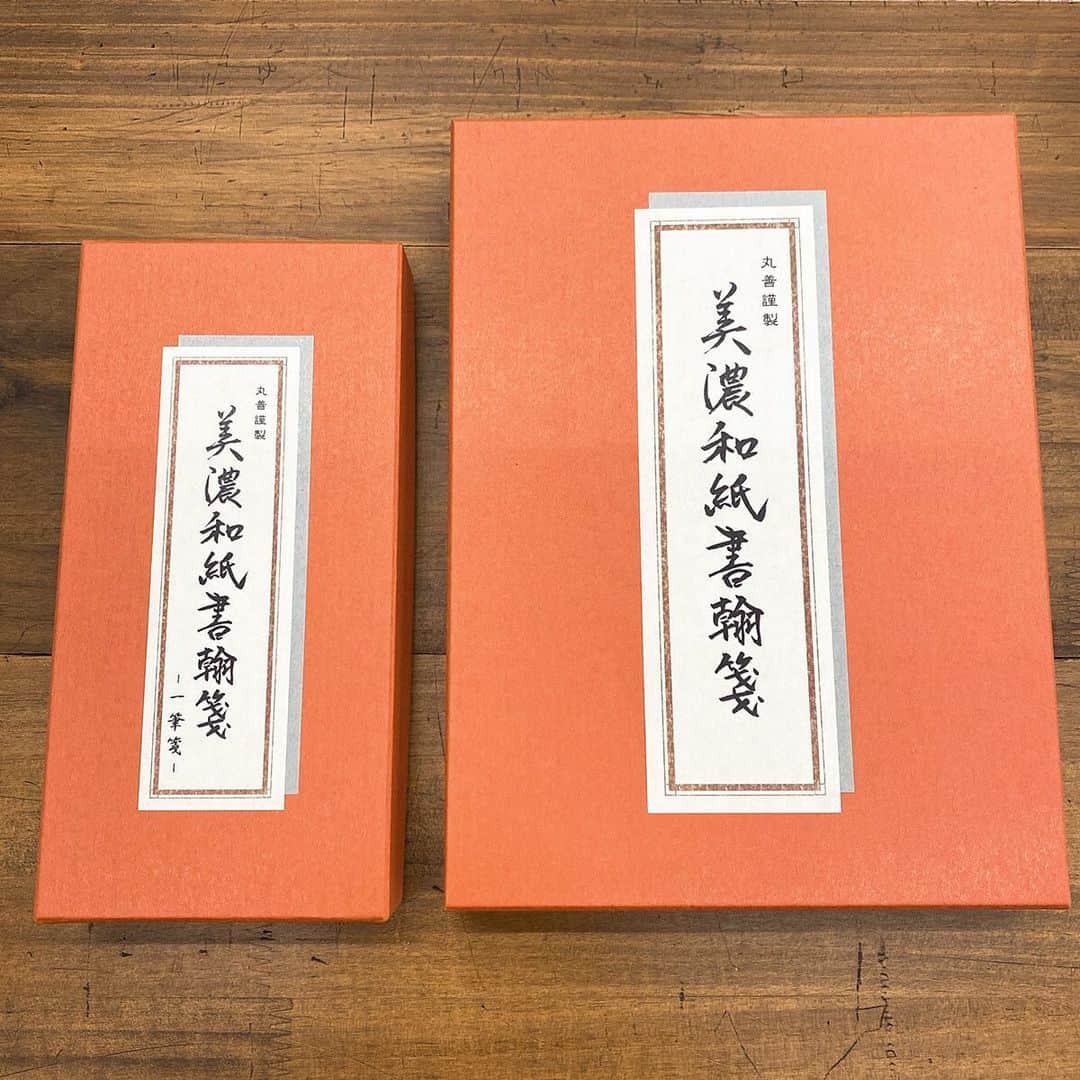 丸善謹製
美濃和紙書翰箋
-一筆箋-
丸善謹製
美濃和紙書翰箋